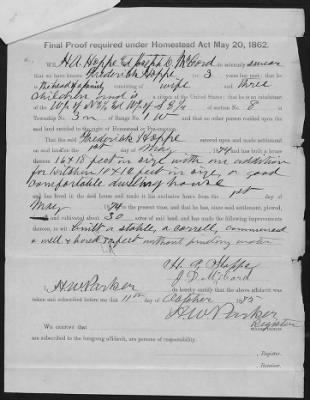 Final Proof required under Homestead Act May 20, 1862.
We, H. A. Hoppe & Joseph D. McCord do solemnly swear
that we have known Frederick Hoppe for 3 years last past; that he
is the head of a family consisting of wife and three
children and is a citizen of the United States; that he is an inhabitant
of the W½ of N E¼ & W½ of S E¼ of section No. 8
Township No. 3 n of Range No. 1 W and that no other person resided upon the
said land entitled to the right of Homestead or Pre-emption.
That the said Frederick Hoppe entered upon and made settlement
on said land on the 1st day of May 1874 and has built a house
thereon 16 x 18 feet in size with one addition
for kitchen 10 x 10 feet in size, a good
comfortable dwelling house
and has lived in the said house and made it his exclusive home from the 1st day of
May 1874 to the present time, and that he has, since said settlement, plowed,
and cultivated about 30 acres of said land, and has made the following improvements
thereon, to wit: built a stable, a correll, commenced
a well & bored feet without finding water
H. A. Hoppe
J. D. McCord
I, H. W. Parker do hereby certify that the above affidavit was
taken and subscribed before me this 11th day of October 1875
H. W. Parker
Register
We certify that
are subscribed to the foregoing affidavit, are persons of respectability.
, Register.
, Receiver.